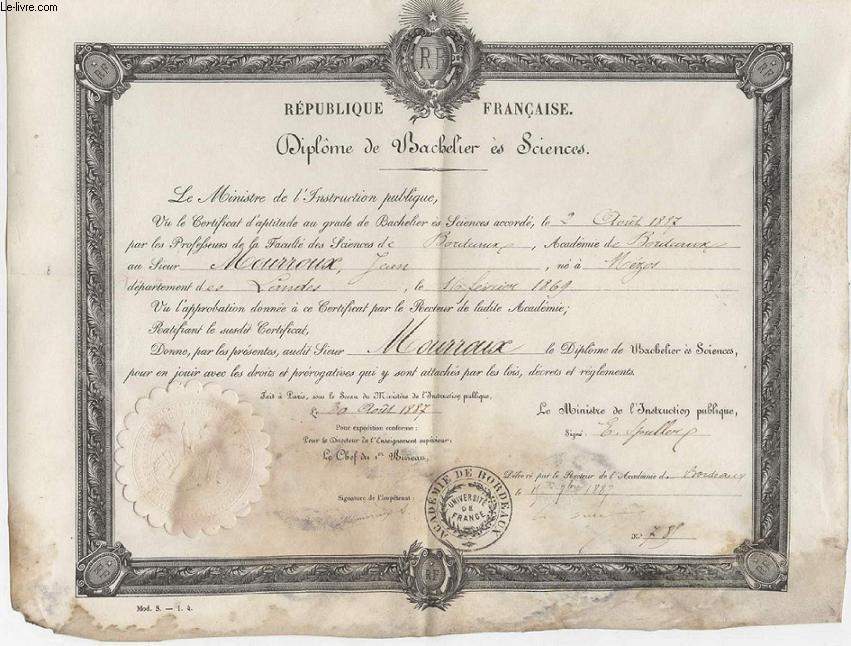 Le-livre.com
RF
RÉPUBLIQUE FRANÇAISE.
Diplôme de Bachelier ès Sciences.
Le Ministre de l'Instruction publique,
Vu le Certificat d'aptitude au grade de Bachelier ès Sciences accordé, le 2 Août 1887
par les Professeurs de la Faculté des Sciences de Bordeaux, Académie de Bordeaux
au Sieur Mourroux, Jean, né à Mézos
département des Landes, le février 1869
Vu l'approbation donnée à ce Certificat par le Recteur de ladite Académie;
Ratifiant le susdit Certificat,
Donne, par les présentes, audit Sieur Mourroux le Diplôme de Bachelier ès Sciences,
pour en jouir avec les droits et prérogatives qui y sont attachés par les lois, décrets et règlements.
Fait à Paris, sous le Sceau du Ministère de l'Instruction publique,
Le 30 Août 1887
Pour expédition conforme:
Pour le Directeur de l'Enseignement supérieur:
Le Chef du 1er Bureau,
Le Ministre de l'Instruction publique,
Signé: E. Spuller
Délivré par le Recteur de l'Académie de Bordeaux
le 1887
Signature de l'impétrant:
ACADÉMIE DE BORDEAUX
UNIVERSITÉ DE FRANCE
No 785
Mod. S. — 1. 4.